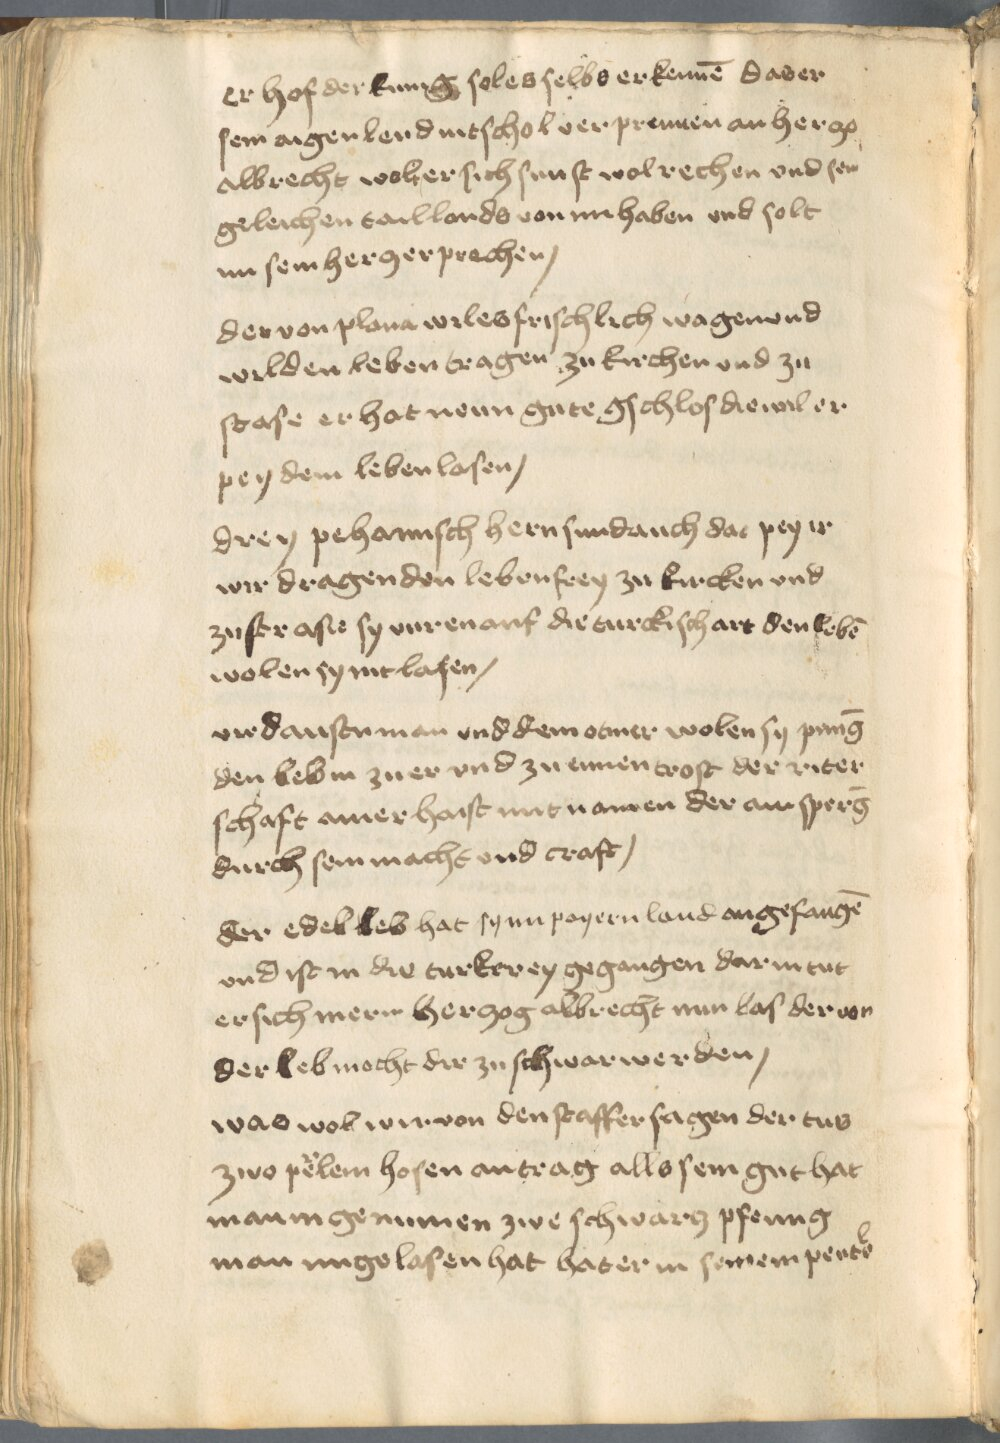 er hof der kunig sol es selbs erkennē das er
sein aigen lend nit schol verprennen an herzo
albrecht wolt er sich sunst wol rechen und sein
geleichen tail lands von im haben und solt
im sein herz erprechen /
der von plana wil es frischlich wagen und
wil den leben tragen zu kirchen und zu
strase er hat neun gute gschlos die wil er
pey dem leben lasen /
drey pehamisch hern sind auch dar pey ir
wir dragen den leben frey zu kircken und
zu strasse sy vuren auf die turckisch art den lebē
wolen sy nit lasen /
und dem otmer wolen sy pring
den lebm zu er und zu einem trost der riter
schaft ainer haist mit namen der am sperg
durch sein macht und craft /
der edel leb hat sy im payern land angefangē
und ist in die turkerey gegangen darin tut
er sich mern herzog albrecht nun las der von
der leb mocht dir zu schwar werden /
was wol wir von den staffer sagen der tus
zwo perlein hosen an trag als sein gut hat
man im genumen zwe schwarz pfening
man im gelasen hat hat er in seinem peutl